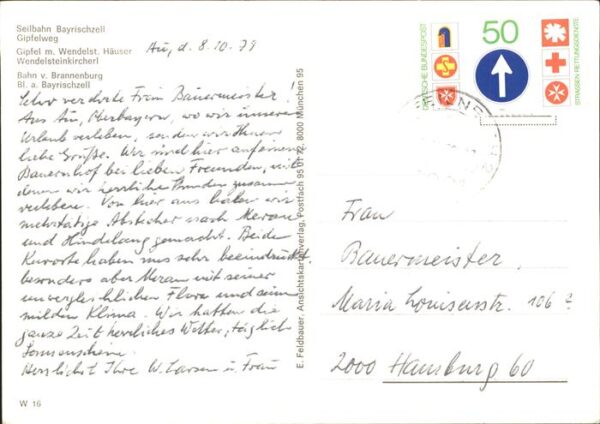 Seilbahn Bayrischzell
Gipfelweg
Gipfel m. Wendelst. Häuser
Wendelsteinkircherl
Bahn v. Brannenburg
Bl. a. Bayrischzell
Au, d. 8.10.79
Sehr verehrte Frau Bauermeister!
Aus Au, Oberbayern, wo wir unseren
Urlaub verleben, senden wir Ihnen
liebe Grüße. Wir sind hier auf einem
Bauernhof bei lieben Freunden, mit
denen wir herrliche Stunden zusamm
verleben. Von hier aus haben wir
mehrtätige Abstecher nach Meran
und Hindelang gemacht. Beide
Kurorte haben uns sehr beeindruckt,
besonders aber Meran mit seiner
unvergleichlichen Flora und dem
milden Klima. Wir hatten die
ganze Zeit herrliches Wetter, täglich
Sonnenschein.
Herzlichst Ihre W. Larsen u. Frau
W 16
E. Feldbauer, Ansichtskartenverlag, Postfach 95 01 72, 8000 München 95
DEUTSCHE BUNDESPOST
50
STRASSEN RETTUNGSDIENSTE
Frau
Bauermeister,
Maria Louisenstr. 106
2000 Hamburg 60